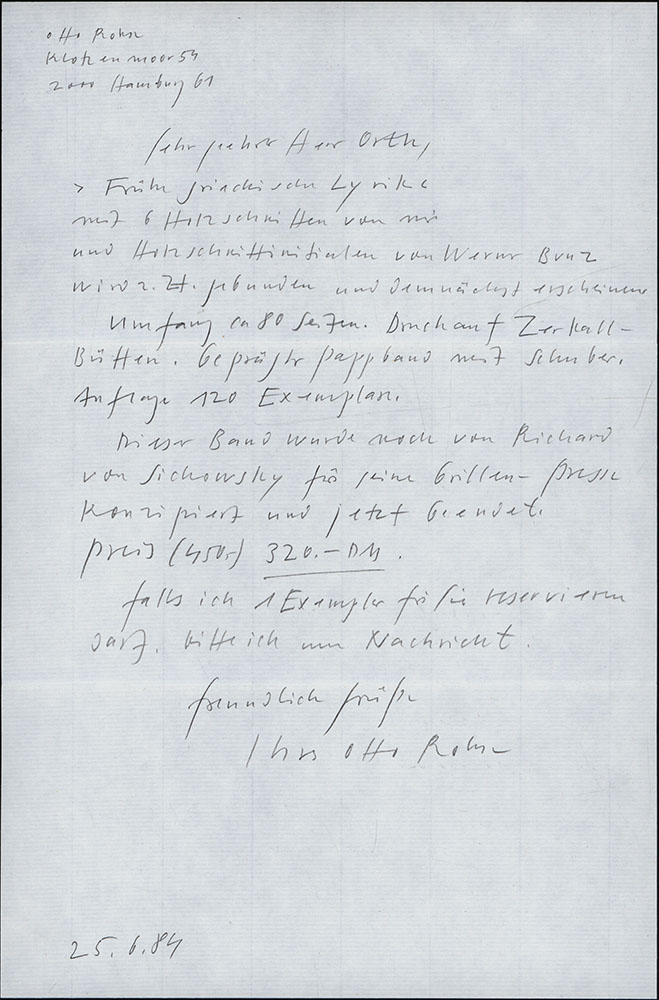 Otto Rohse
Klotzenmoor 54
2000 Hamburg 61
Sehr geehrter Herr Orth,
> Frühe griechische Lyrik <
mit 6 Holzschnitten von mir
und Holzschnittinitialen von Werner Bunz
wird z. Zt. gebunden und demnächst erscheinen
Umfang ca 80 Seiten. Druck auf Zerkall-
Bütten. Geprägter Pappband mit Schuber.
Auflage 120 Exemplare.
Dieser Band wurde noch von Richard
von Sichowsky für seine Grillen-Presse
konzipiert und jetzt beendet.
Preis (450.-) 320.- DM.
Falls ich 1 Exemplar für Sie reservieren
darf, bitte ich um Nachricht.
freundlich Grüße
Ihr Otto Rohse
25.6.84